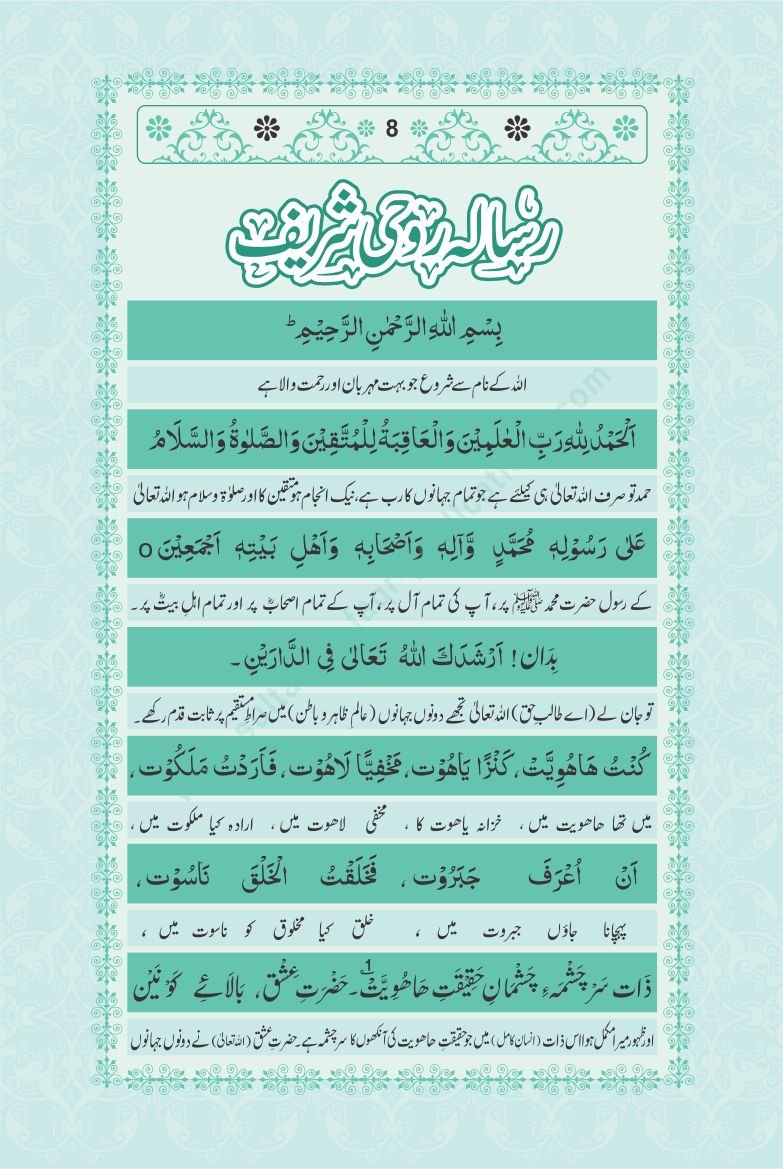 8
رسالہ روحی شریف
بِسْمِ اللّٰہِ الرَّحْمٰنِ الرَّحِیْمِ ؕ
اللہ کے نام سے شروع جو بہت مہربان اور رحمت والا ہے
اَلْحَمْدُ لِلّٰہِ رَبِّ الْعٰلَمِیْنَ وَالْعَاقِبَۃُ لِلْمُتَّقِیْنَ وَالصَّلٰوۃُ وَالسَّلَامُ
حمد تو صرف اللہ تعالیٰ ہی کیلئے ہے جو تمام جہانوں کا رب ہے، نیک انجام ہو متقین کا اور صلوٰۃ و سلام ہو اللہ تعالیٰ
عَلٰی رَسُوْلِہٖ مُحَمَّدٍ وَّآلِہٖ وَاَصْحَابِہٖ وَاَھْلِ بَیْتِہٖ اَجْمَعِیْنَ o
کے رسول حضرت محمد ﷺ پر، آپ کی تمام آل پر، آپ کے تمام اصحابؓ پر اور تمام اہلِ بیتؓ پر۔
بِدَان! اَرْشَدَكَ اللّٰہُ تَعَالٰی فِی الدَّارَیْنِ۔
تو جان لے (اے طالبِ حق) اللہ تعالیٰ تجھے دونوں جہانوں (عالمِ ظاہر و باطن) میں صراطِ مستقیم پر ثابت قدم رکھے۔
کُنْتُ ھَاھُوِیَّتْ، کَنْزًا یَاھُوْت، مَخْفِیًّا لَاھُوْت، فَاَرَدْتُ مَلَکُوْت،
میں تھا ھاھویت میں، خزانہ یاھوت کا، مخفی لاھوت میں، ارادہ کیا ملکوت میں،
اَنْ اُعْرَفَ جَبَرُوْت، فَخَلَقْتُ الْخَلْقَ نَاسُوْت،
پہچانا جاؤں جبروت میں ، خلق کیا مخلوق کو ناسوت میں ،
ذَات سَرْچَشْمَہءِ چَشْمَانِ حَقِیْقَتِ ھَاھُوِیَّتْ1۔ حَضْرَتِ عِشْق، بَالَائے کَوْنَیْن
اور ظہور میرا مکمل ہوا اس ذات (انسانِ کامل) میں جو حقیقتِ ھاھویت کی آنکھوں کا سرچشمہ ہے۔ حضرتِ عشق (اللہ تعالیٰ) نے دونوں جہانوں